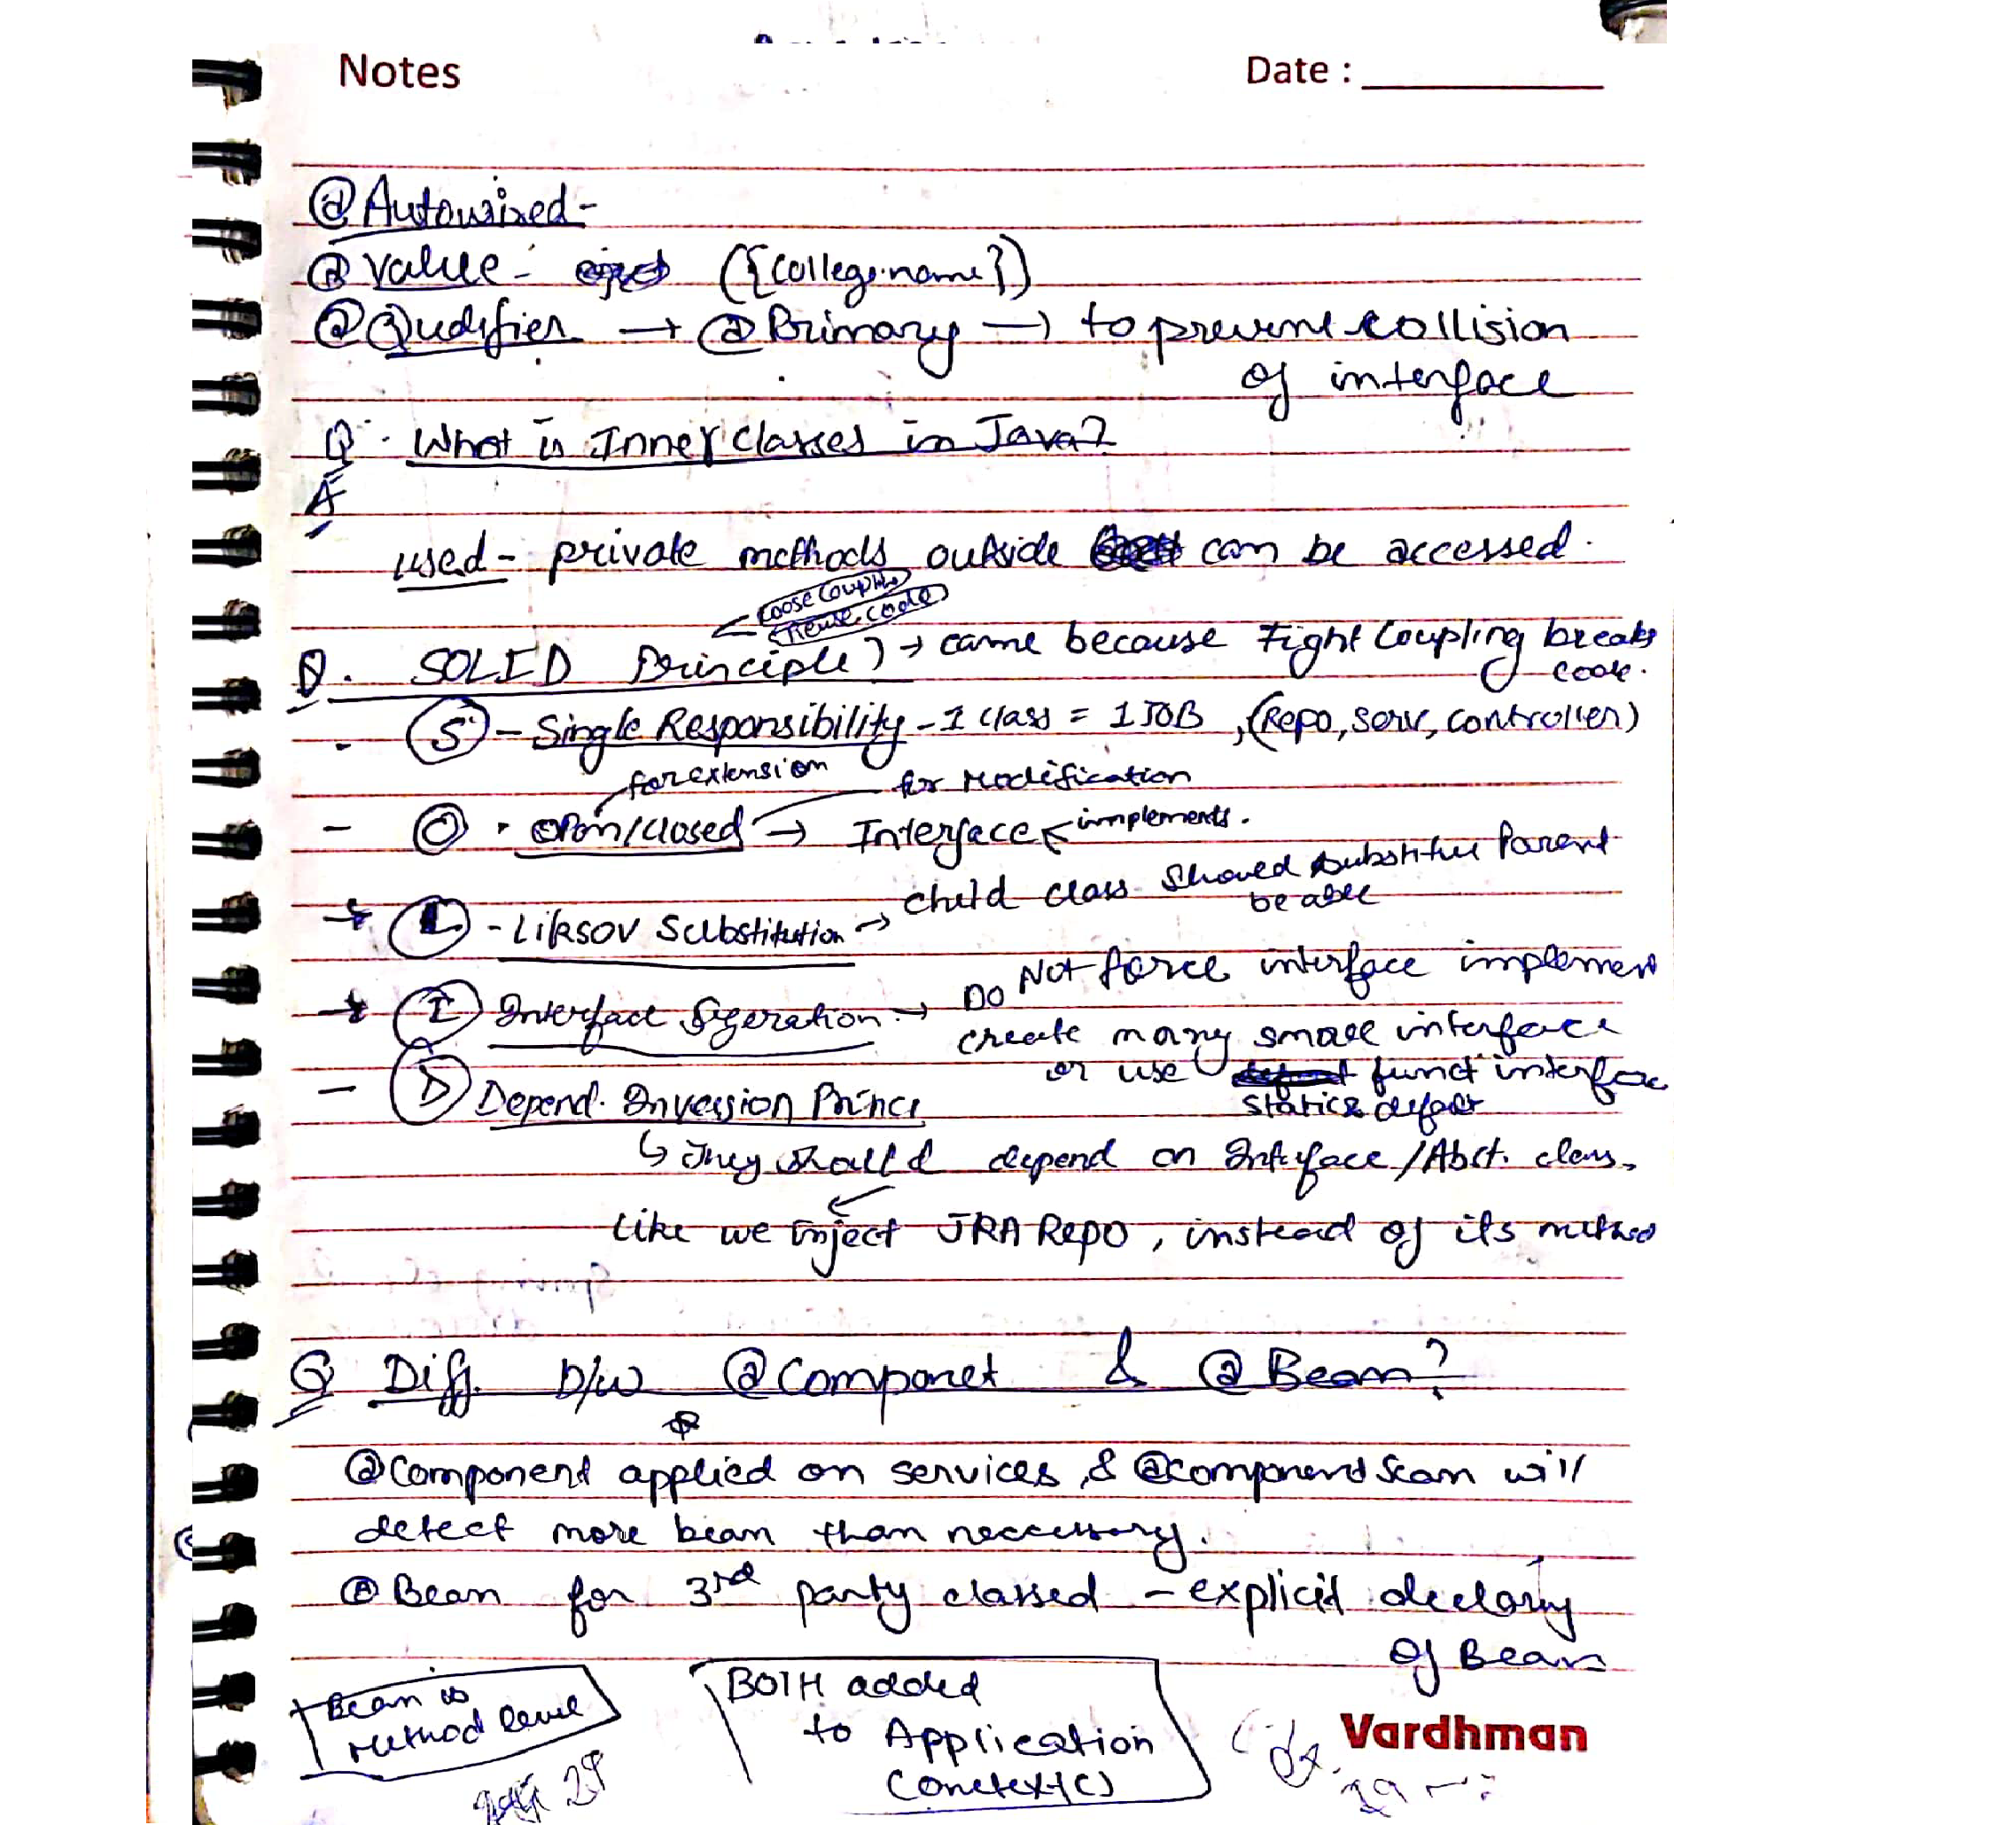 Notes Date :
@Autowired -
@Value - ({college.name})
@Qudifier → @Primary → to prevent collision
of interface
Q. What is Inner classes in Java?
A
used - private methods outside can be accessed.
Loose Coupling
Reuse code
Q. SOLID Principle) → came because Tight Coupling breaks
code.
- (S) - Single Responsibility - 1 class = 1 JOB, (Repo, serv, controller)
for extension for Modification
- (O) . open/closed → Interface ← implements.
→ (L) - Liksov Substitution → child class should substitute Parent
be able
→ (I) Interface Sgeration → DO Not force interface implement
create many small interface
or use funct interfac
static & default
- (D) Depend. Inversion Princi
↳ They should depend on Interface/Abst. class.
Like we inject JRA Repo, instead of its method
Q Diff. b/w @Componet & @Bean?
@Component applied on services, & @componentScan will
detect more bean than neccessary.
@Bean for 3rd party classed - explicit declaring
of Bean
Bean is
method level
BOTH added
to Application
Conctext(c)
Vardhman